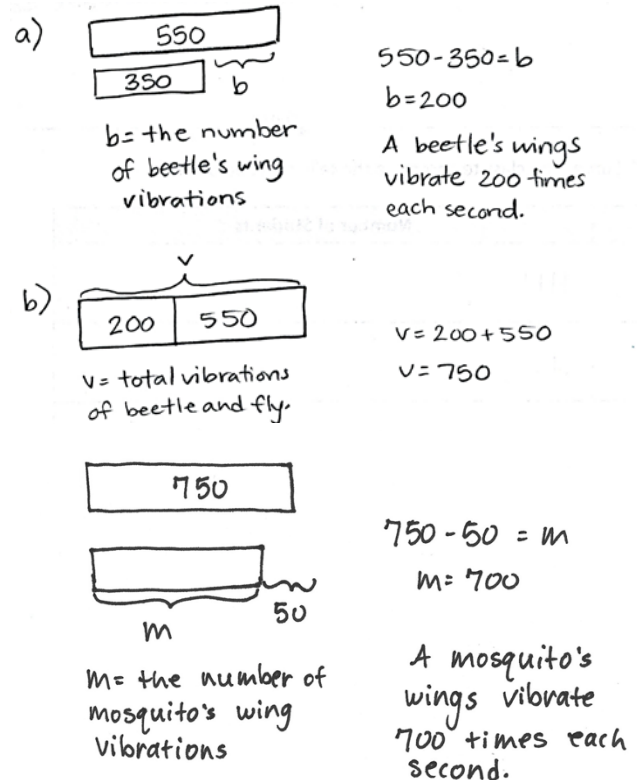 a)
550
350
b
b= the number
of beetle's wing
vibrations
550-350=b
b=200
A beetle's wings
vibrate 200 times
each second.
b)
v
200 550
v= total vibrations
of beetle and fly.
v=200+550
v=750
750
m
50
m= the number of
mosquito's wing
vibrations
750-50 = m
m= 700
A mosquito's
wings vibrate
700 times each
second.